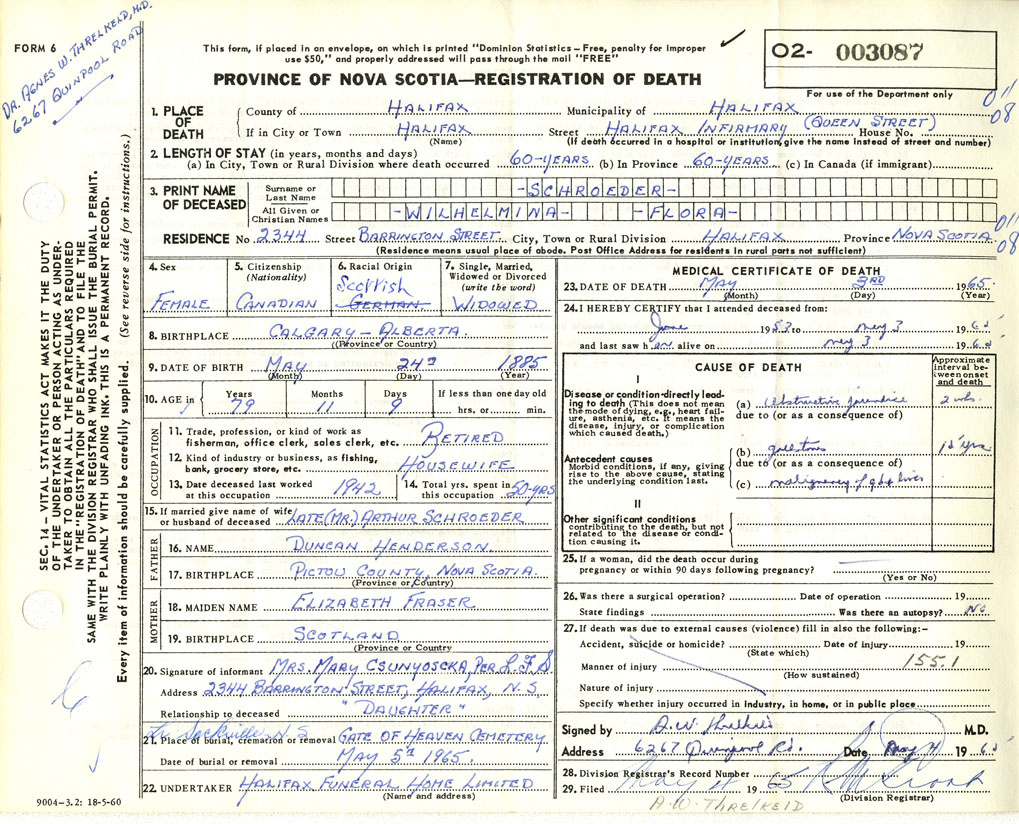 DR. AGNES W. THRELKELD, M.D.
6267 QUINPOOL ROAD
FORM 6
This form, if placed in an envelope, on which is printed "Dominion Statistics – Free, penalty for improper
use $50," and properly addressed will pass through the mail "FREE"
PROVINCE OF NOVA SCOTIA—REGISTRATION OF DEATH
02- 003087
For use of the Department only
011
08
1. PLACE OF DEATH
County of HALIFAX Municipality of HALIFAX
If in City or Town HALIFAX Street HALIFAX INFIRMARY (QUEEN STREET) House No.
(Name) (If death occurred in a hospital or institution, give the name instead of street and number)
2. LENGTH OF STAY (in years, months and days)
(a) In City, Town or Rural Division where death occurred 60-YEARS (b) In Province 60-YEARS (c) In Canada (if immigrant)
3. PRINT NAME OF DECEASED
Surname or Last Name -SCHROEDER-
All Given or Christian Names -WILHELMINA- -FLORA-
011
08
RESIDENCE No 2344 Street BARRINGTON STREET. City, Town or Rural Division HALIFAX Province NOVA SCOTIA
(Residence means usual place of abode. Post Office Address for residents in rural parts not sufficient)
SEC. 14 – VITAL STATISTICS ACT MAKES IT THE DUTY
OF THE UNDERTAKER OR PERSON ACTING AS UNDER-
TAKER TO OBTAIN ALL THE PARTICULARS REQUIRED
IN THE "REGISTRATION OF DEATH" AND TO FILE THE
SAME WITH THE DIVISION REGISTRAR WHO SHALL ISSUE THE BURIAL PERMIT.
WRITE PLAINLY WITH UNFADING INK. THIS IS A PERMANENT RECORD.
Every item of information should be carefully supplied. (See reverse side for instructions.)
4. Sex
FEMALE
5. Citizenship
(Nationality)
CANADIAN
6. Racial Origin
Scottish
GERMAN
7. Single, Married,
Widowed or Divorced
(write the word)
WIDOWED
8. BIRTHPLACE CALGARY – ALBERTA.
(Province or Country)
9. DATE OF BIRTH MAY 24th 1885
(Month) (Day) (Year)
10. AGE in Years 79 Months 11 Days 9 If less than one day old
hrs. or min.
OCCUPATION
11. Trade, profession, or kind of work as
fisherman, office clerk, sales clerk, etc. RETIRED
12. Kind of industry or business, as fishing,
bank, grocery store, etc. HOUSEWIFE
13. Date deceased last worked
at this occupation 1942
14. Total yrs. spent in
this occupation 50-YRS
15. If married give name of wife
or husband of deceased LATE (MR.) ARTHUR SCHROEDER
FATHER
16. NAME DUNCAN HENDERSON.
17. BIRTHPLACE PICTOU COUNTY, NOVA SCOTIA.
(Province or Country)
MOTHER
18. MAIDEN NAME ELIZABETH FRASER.
19. BIRTHPLACE SCOTLAND
(Province or Country
20. Signature of informant MRS. MARY CSUNYOSCKA, PER. L. F. S
Address 2344 BARRINGTON STREET, HALIFAX, N. S
Relationship to deceased "DAUGHTER"
Lr. Sackville, N. S
21. Place of burial, cremation or removal GATE OF HEAVEN CEMETERY
Date of burial or removal MAY 5th 1965.
22. UNDERTAKER HALIFAX FUNERAL HOME LIMITED
(Name and address)
9004–3.2: 18-5-60
MEDICAL CERTIFICATE OF DEATH
23. DATE OF DEATH MAY 3RD 1965.
(Month) (Day) (Year)
24. I HEREBY CERTIFY that I attended deceased from:
June 1953 to May 3 1965
and last saw her alive on May 3 1965
CAUSE OF DEATH
Approximate
interval be-
tween onset
and death
I
Disease or condition directly lead-
ing to death (This does not mean
the mode of dying, e.g., heart fail-
ure, asthenia, etc. It means the
disease, injury, or complication
which caused death.)
(a) obstructive jaundice 2 wks.
due to (or as a consequence of)
Antecedent causes
Morbid conditions, if any, giving
rise to the above cause, stating
the underlying condition last.
(b) gallstones 15 yrs
due to (or as a consequence of)
(c) malignancy of
II
Other significant conditions
contributing to the death, but not
related to the disease or condi-
tion causing it.
25. If a woman, did the death occur during
pregnancy or within 90 days following pregnancy?
(Yes or No)
26. Was there a surgical operation? Date of operation 19
State findings Was there an autopsy? No
27. If death was due to external causes (violence) fill in also the following:–
Accident, suicide or homicide? Date of injury 19
(State which)
Manner of injury 155.1
(How sustained)
Nature of injury
Specify whether injury occurred in Industry, in home, or in public place
Signed by A.W. Threlkeld M.D.
Address 6267 Quinpool Rd. Date May 4 1965
28. Division Registrar's Record Number
29. Filed May 4 1965
(Division Registrar)
A. W. THRELKELD